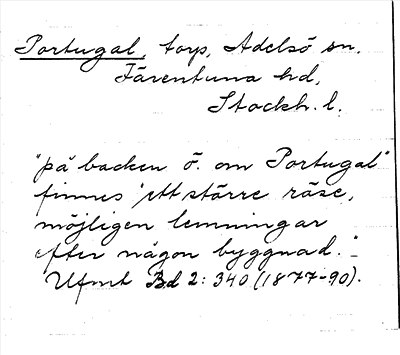 Portugal, torp, Adelsö sn.
Färentuna hd,
Stockh. l.
"på backen ö. om Portugal"
finnes "ett större röse,
möjligen lemningar
efter någon byggnad."
Ufmt Bd 2: 340 (1877-90).